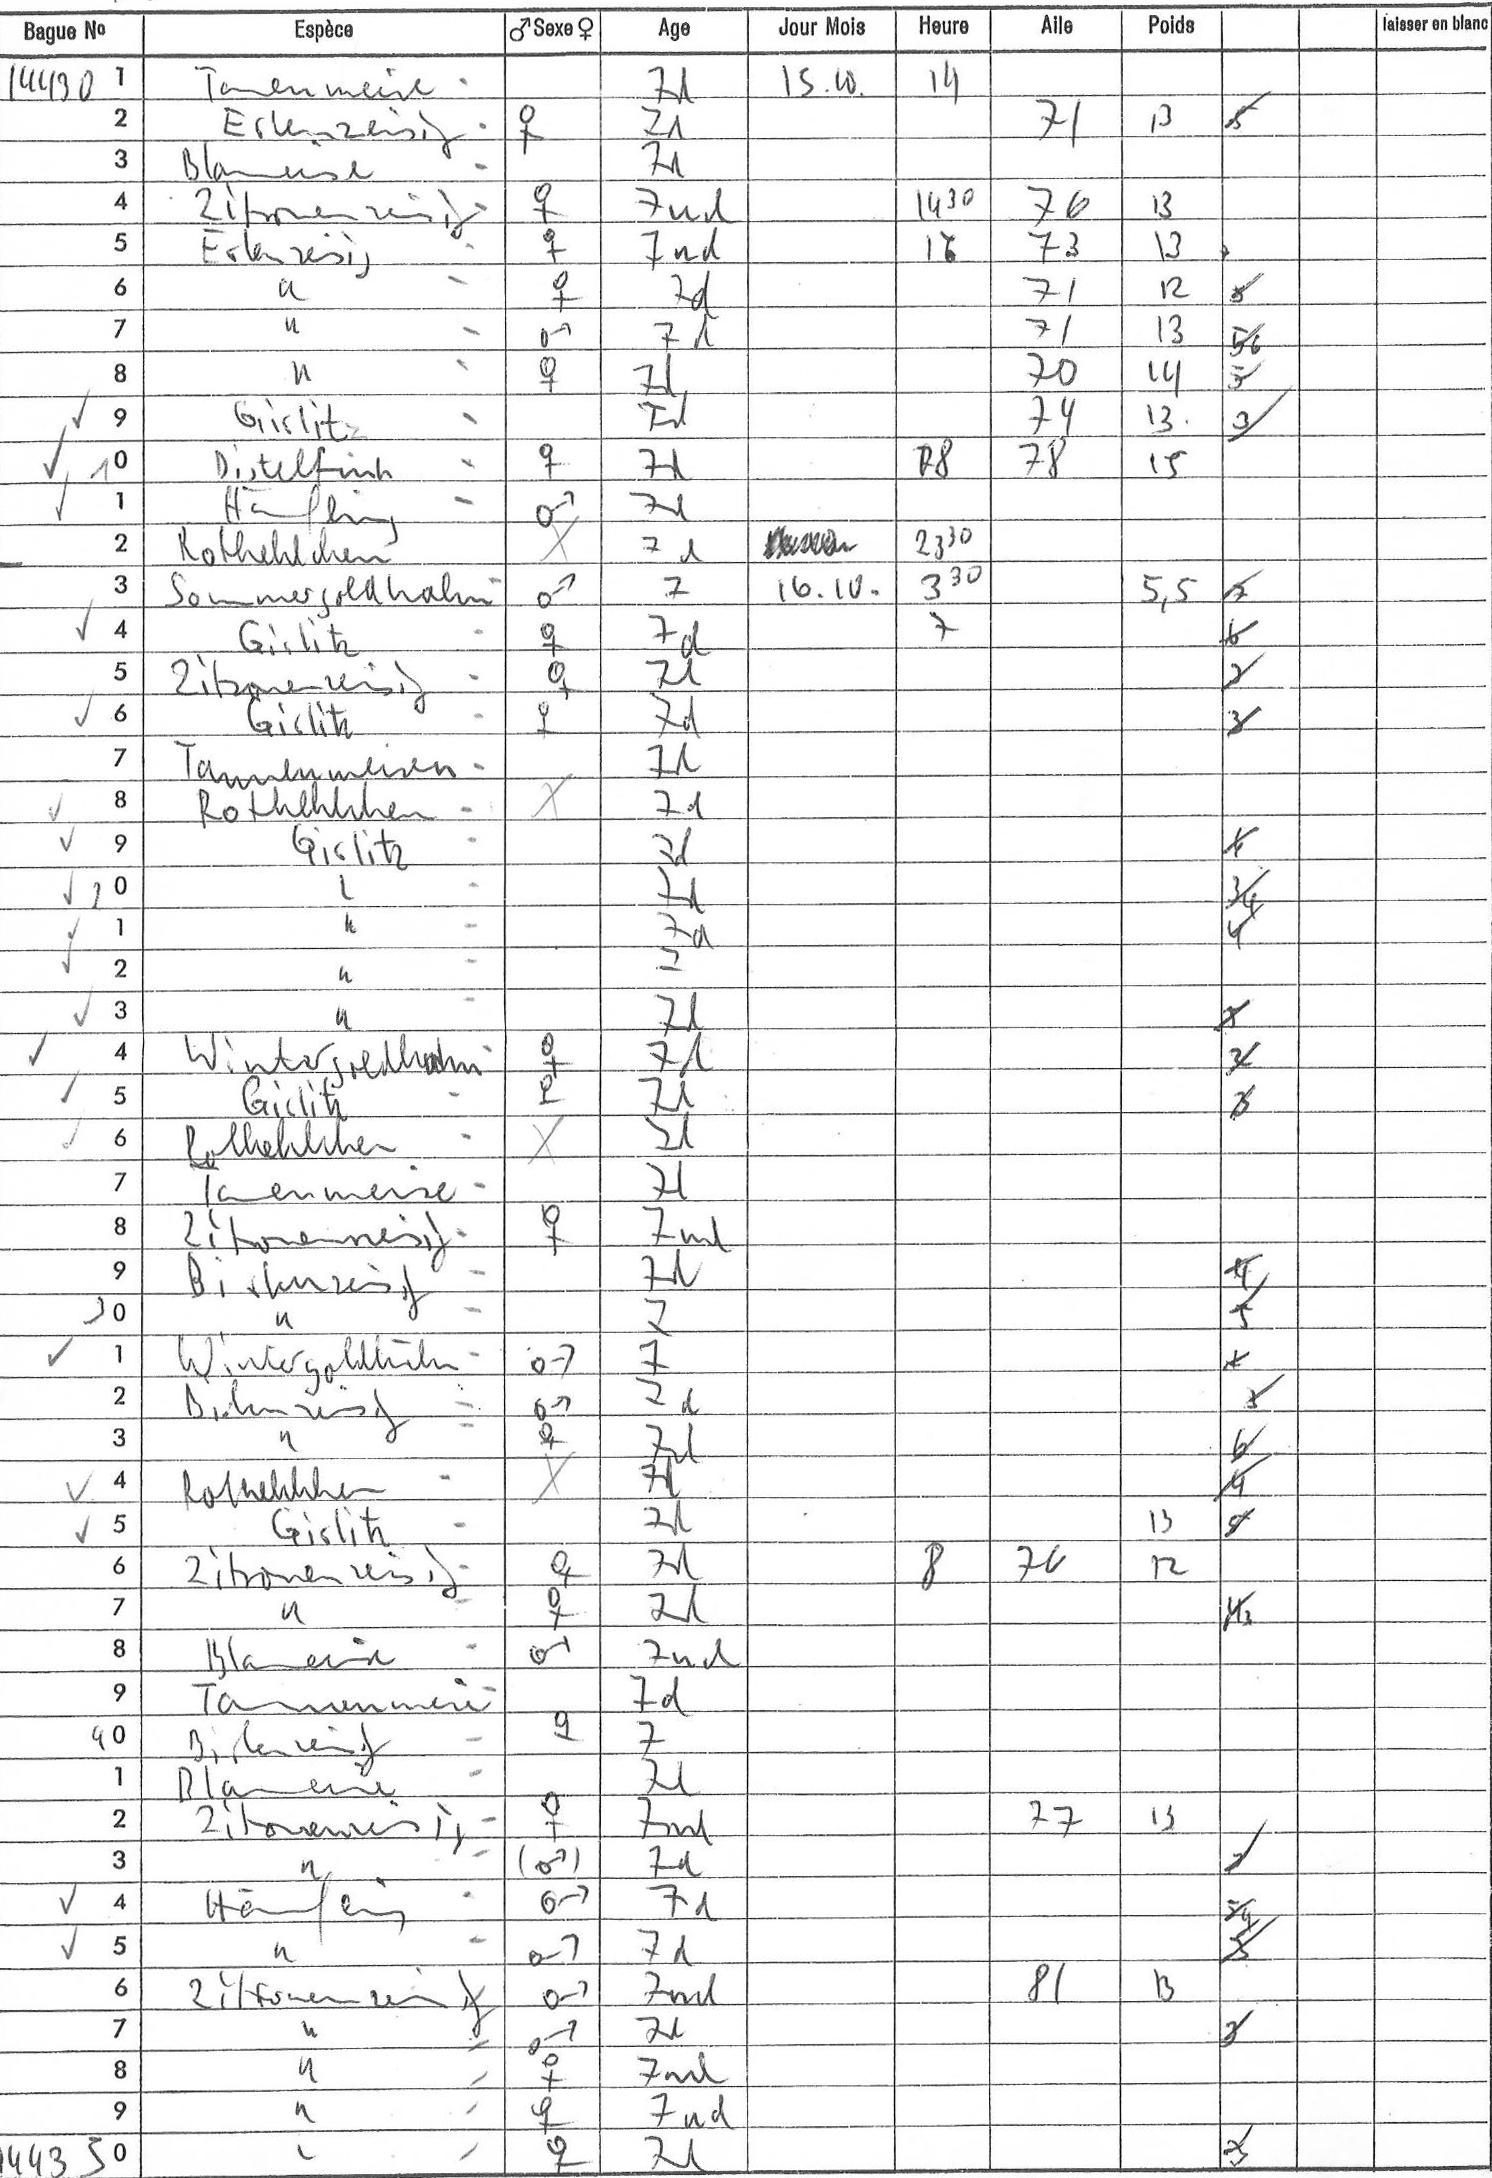 Bague No Espèce ♂ Sexe ♀ Age Jour Mois Heure Aile Poids laisser en blanc
1 Tanenmeise - 7d 15.10. 14
2 Erlenzeisig - ♀ 7d 71 13 5
3 Blaumeise - 7d
4 Zitronenzeisig - ♀ 7nd 14 30 76 13
5 Erlenzeisig - ♀ 7nd 16 73 13
6 " - ♀ 7d 71 12 5
7 " - ♂ 7d 71 13 56
8 " - ♀ 7d 70 14 5
✓ 9 Girlitz - 7d 74 13. 3
✓ 10 Distelfink - ♀ 7d 18 78 15
✓ 1 Hänfling - ♂ 7d
2 Rotkehlchen X 7d 23 30
3 Sommergoldhahn - ♂ 7 16.10. 3 30 5,5
✓ 4 Girlitz - ♀ 7d 7 6
5 Zitronenzeisig - ♀ 7d 2
✓ 6 Girlitz - ♀ 7d 3
7 Tannenmeisen - 7d
✓ 8 Rotkehlchen - X 7d
✓ 9 Girlitz - 7d 4
✓ 20 " - 7d 3/4
✓ 1 " - 7d 4
✓ 2 " - 7
✓ 3 " - 7d
✓ 4 Wintergoldhahn - ♀ 7d 2
✓ 5 Girlitz - ♀ 7d 3
✓ 6 Rotkehlchen - X 7d
7 Tanenmeise - 7d
8 Zitronenzeisig - ♀ 7nd
9 Birkenzeisig - 7d 4
30 " - 7 5
✓ 1 Wintergoldhähn - ♂ 7
2 Birkenzeisig - ♂ 7d
3 " - ♀ 7d 6
✓ 4 Rotkehlchen - X 7d 4
✓ 5 Girlitz - 7d 13 5
6 Zitronenzeisig - ♀ 7d 8 76 12
7 " - ♀ 7d
8 Blaumeise - ♂ 7nd
9 Tannenmeise - 7d
40 Birkenzeisig - ♀ 7
1 Blaumeise - 7d
2 Zitronenzeisig - ♀ 7nd 77 13
3 " - (♂) 7d
✓ 4 Hänfling - ♂ 7d
✓ 5 " - ♂ 7d 3
6 Zitronenzeisig ♂ 7nd 81 13
7 " - ♂ 7d 3
8 " - ♀ 7nd
9 " - ♀ 7nd
14435 0 " - ♀ 7d